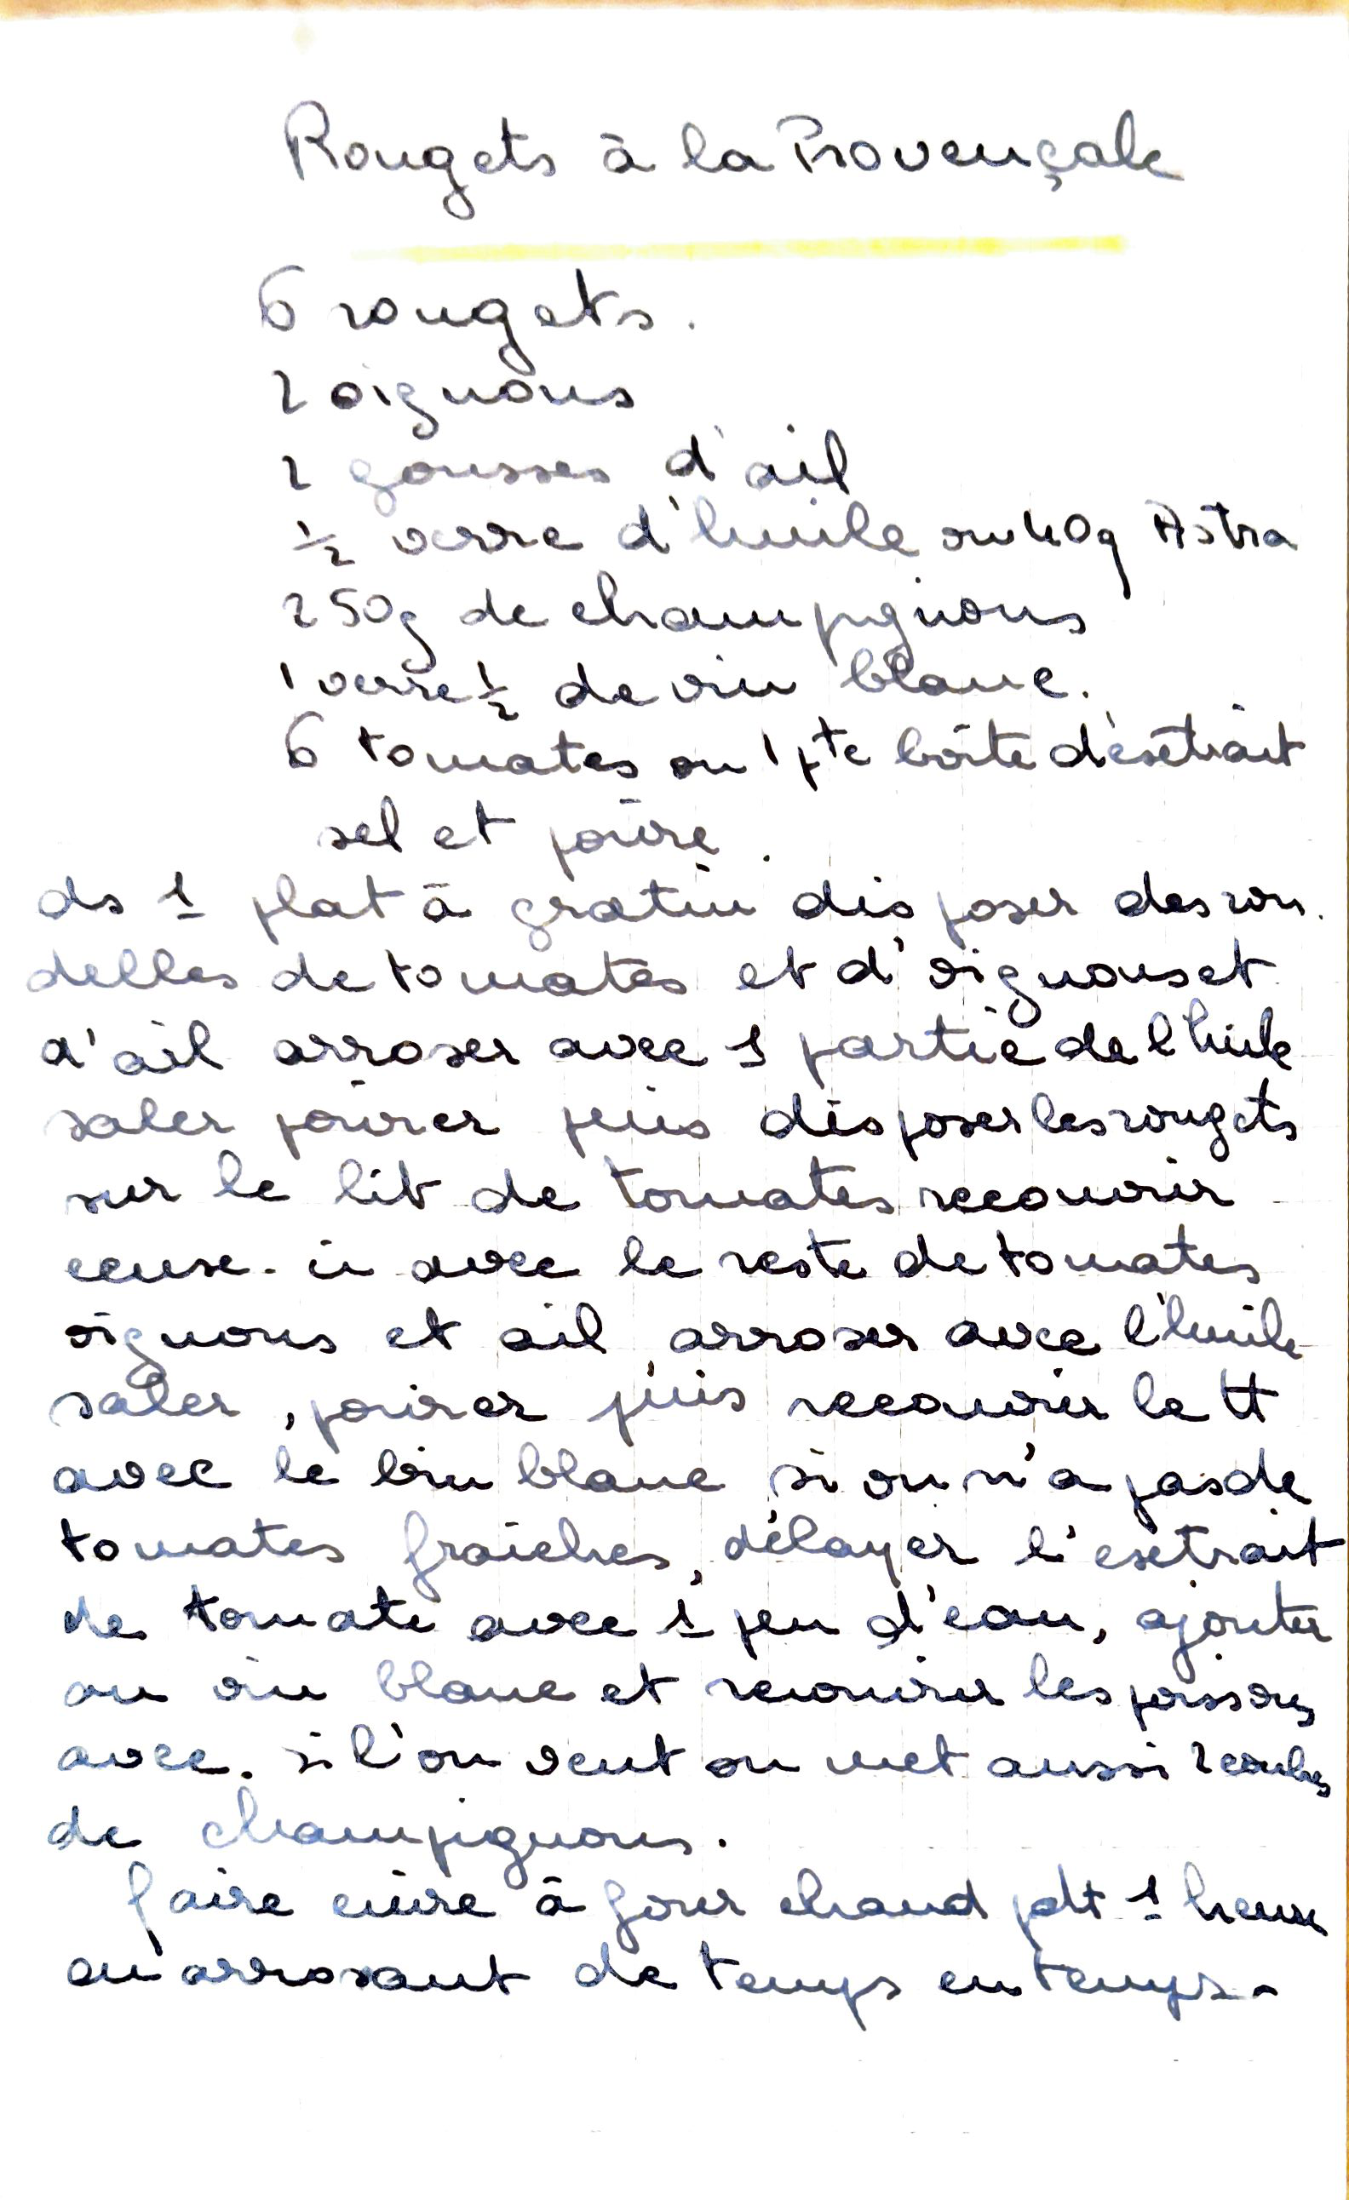 Rougets à la Provençale
6 rougets.
2 oignons
2 gousses d'ail
1/2 verre d'huile ou 40g Astra
250g de champignons
1 verre 1/2 de vin blanc.
6 tomates ou 1 pte boîte d'extrait
sel et poivre.
ds 1 plat à gratin disposer des ron.
delles de tomates et d'oignons et
d'ail arroser avec 1 partie de l'huile
saler poivrer puis disposer les rougets
sur le lit de tomates recouvrir
ceux-ci avec le reste de tomates
oignons et ail, arroser avec l'huile
saler, poivrer puis recouvrir le tt
avec le vin blanc si on n'a pas de
tomates fraîches, délayer l'extrait
de tomate avec 1 peu d'eau, ajouter
au vin blanc et recouvrir les poissons
avec. si l'on veut on met aussi 2 couches
de champignons.
faire cuire à four chaud pdt 1 heure
en arrosant de temps en temps.